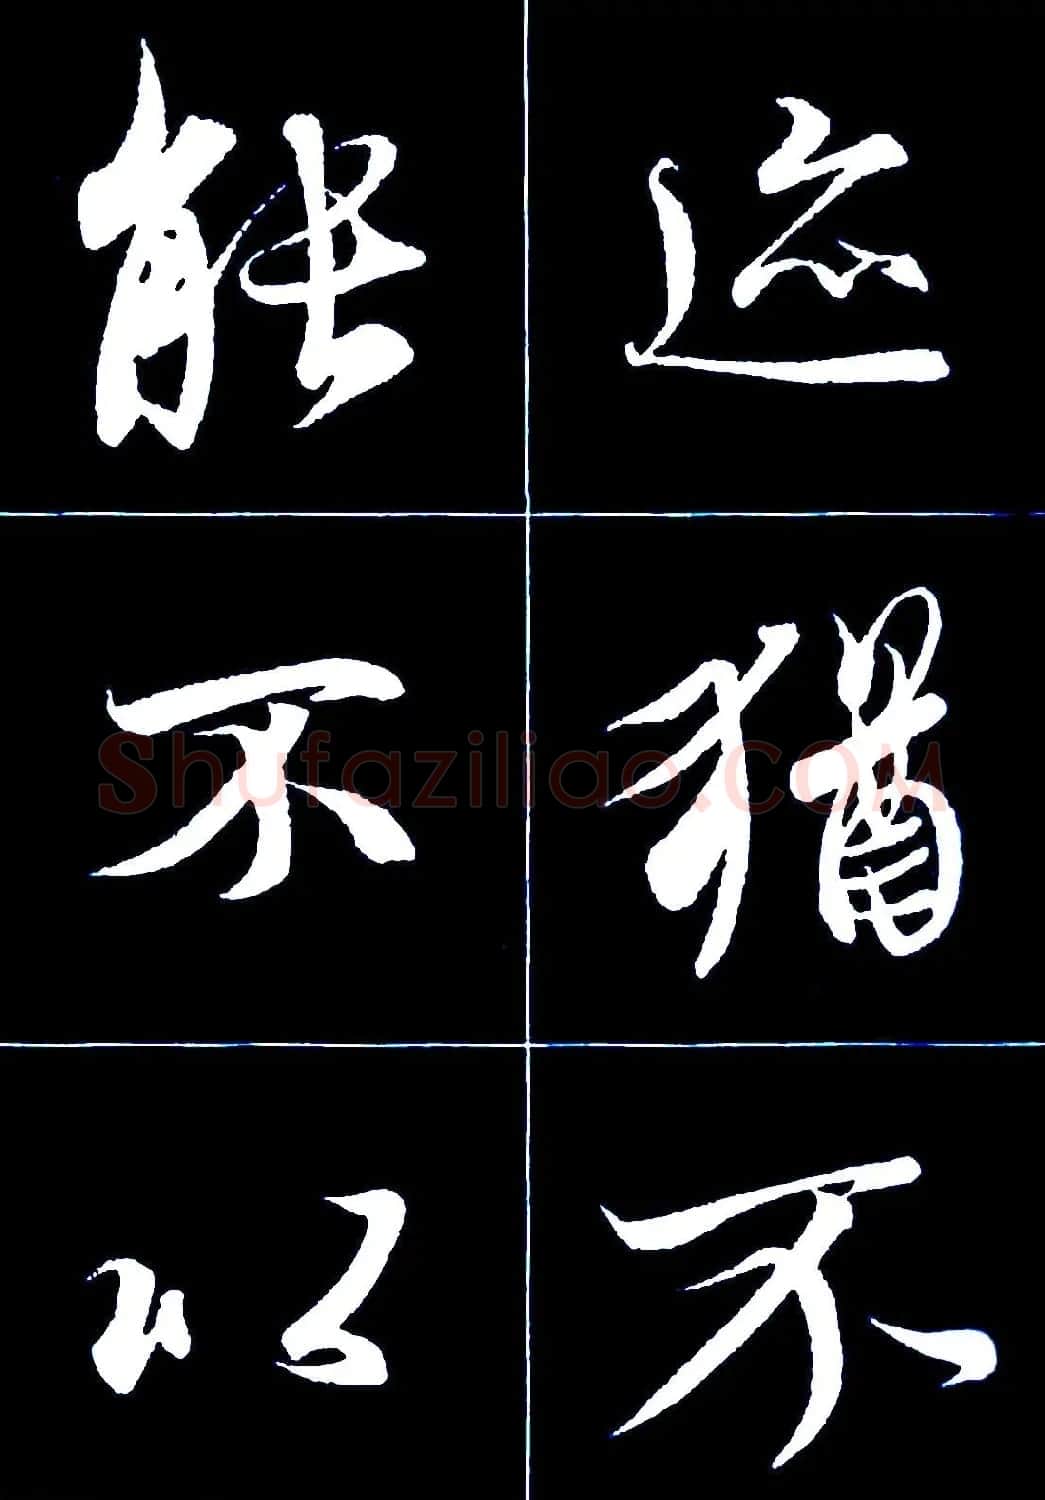 迹
猶
不
能
不
以
Shufaziliao.COM